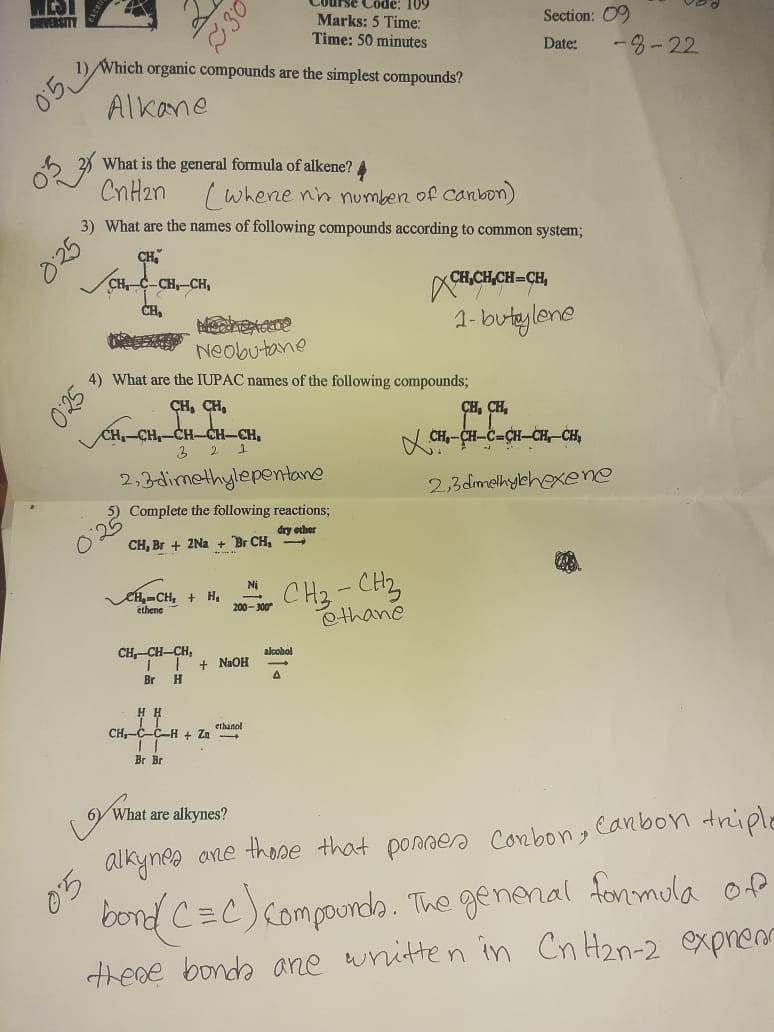 WEST
UNIVERSITY
2
≈30
Course Code: 109
Marks: 5 Time:
Time: 50 minutes
Section: 09
Date: -8-22
0.5
1) Which organic compounds are the simplest compounds?
Alkane
0.5
2) What is the general formula of alkene?
CnH2n (where n is number of carbon)
3) What are the names of following compounds according to common system;
0.25
CH₃
CH₃-C-CH₂-CH₃
CH₃
CH₃CH₂CH=CH₂
Neobutane
1-butylene
4) What are the IUPAC names of the following compounds;
0.25
CH₃ CH₃
CH₃-CH₂-CH-CH-CH₃
3 2 1
CH₃ CH₃
CH₃-CH-C=CH-CH₂-CH₃
2,3dimethylepentane
2,3dimethylehexene
5) Complete the following reactions;
0.25
CH₃ Br + 2Na + Br CH₃ dry ether
CH₂=CH₂ + H₂ Ni CH3-CH3
ethene 200-300° ethane
CH₃-CH-CH₂ + NaOH alcohol
Br H Δ
H H
CH₃-C-C-H + Zn ethanol
Br Br
6) What are alkynes?
alkynes are those that posses carbon, carbon triple
0.5
bond (C≡C) compounds. The general formula of
these bonds are written in CnH2n-2